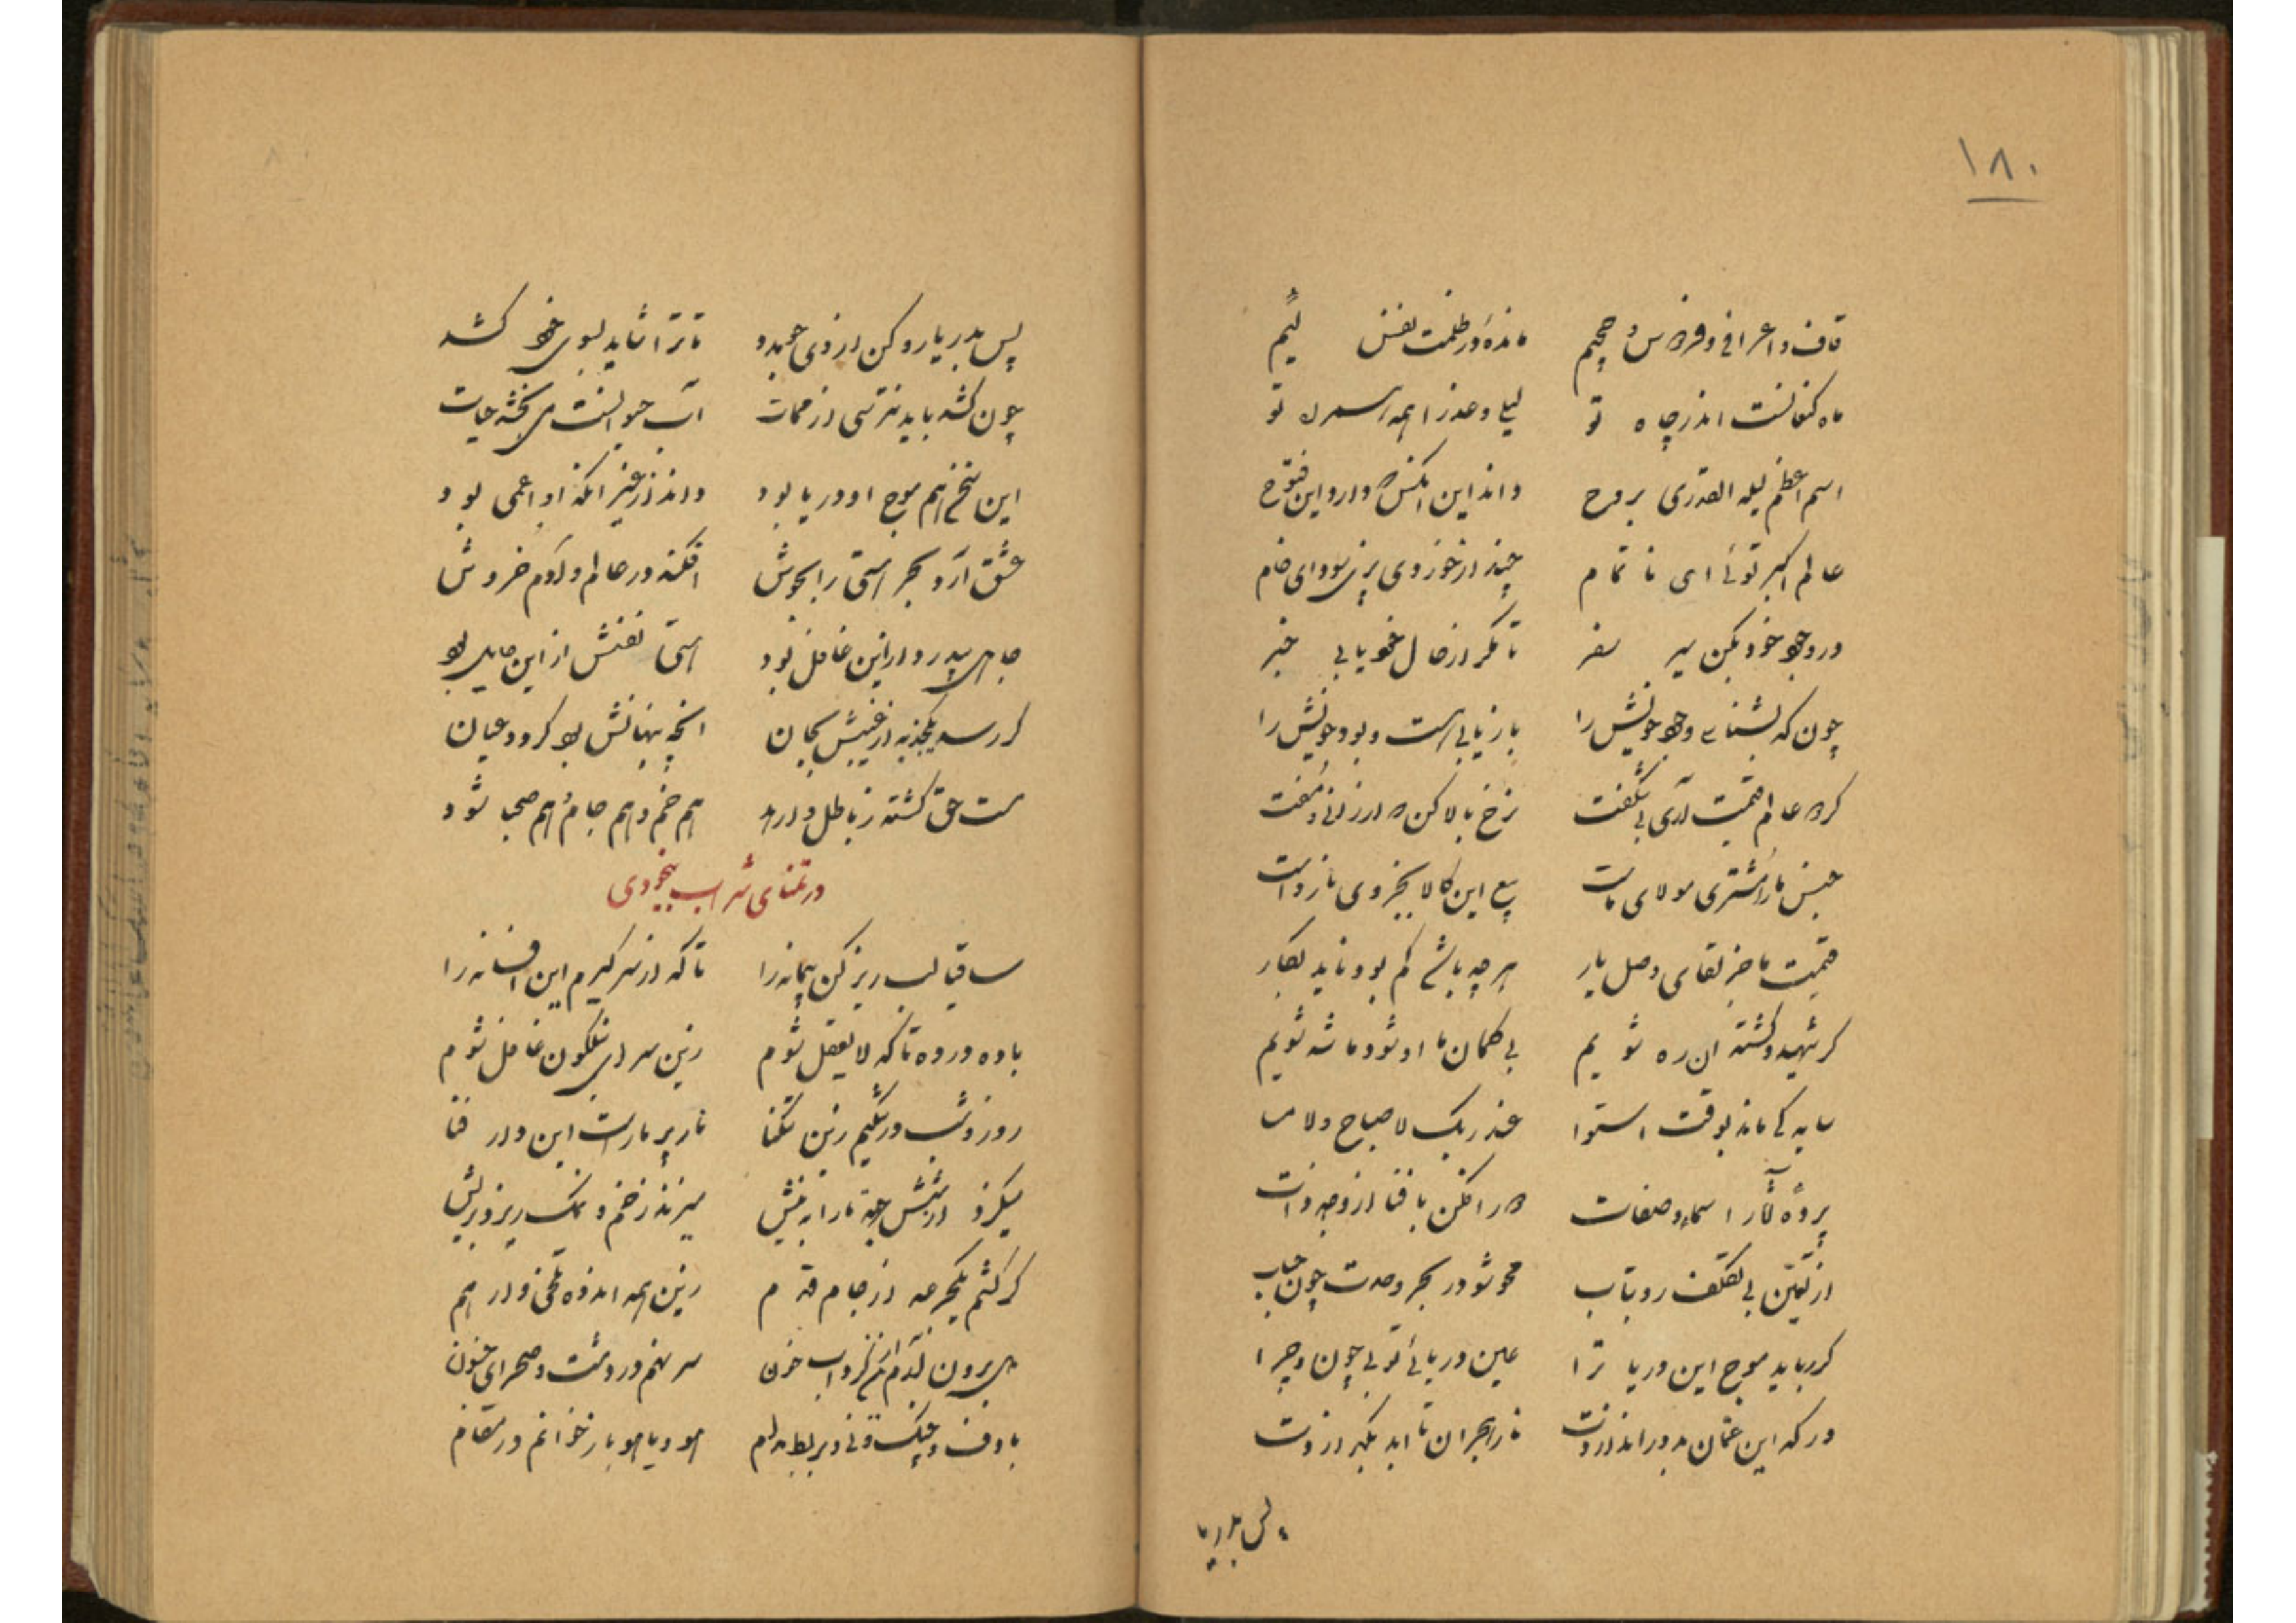 ۱۸۰
قاف و اعراف و فردوس و جحیم مانده در ظلمت نفس لئیم
ماه کنعانست اندر چاه تو لیلی و عذرا همه تو
اسم اعظم لیله القدری بروح داند این آنکش که دارد این فتوح
عالم اکبر توئی ای ناتمام چند از خود وی پزی سودای خام
در وجود خود بکن سیر سفر تا مگر از حال خود یابی خبر
چون که بشناسی وجود خویش را بازیابی هست و بود خویش را
کرد عالم قیمت آری بی شگفت نرخ بالا کن که ارزانی و مفت
جنس ما را مشتری مولای ماست بیع این کالا بغیر وی نارواست
قیمت ما جز لقای وصل یار هر چه باشد کم بود ناید بکار
کر شهید و کشته آن ره شویم بی گمان ما او شود ما شه شویم
سایه کی ماند بوقت استوا عند ربک لا صباح و لا مسا
پرده آثار اسماء و صفات در افکن با فنا از وجه ذات
از تعین بی تکلف رو بتاب محو شو در بحر وحدت چون حباب
کر رباید موج این دریا ترا عین دریائی تو بی چون و چرا
ور که این عمان بدور اندازدت نار هجران تا ابد بگدازدت
پس بدریا
پس بدریا رو کن از وی جمد و تا ترا شاید بسوی خود کشد
چون کشد باید نترسی از ممات آب حیوانست می بخشد حیات
این سخن هم موج او دریا بود داند از غیر آنکه او اعمی بود
عشق آرد بحر هستی را بجوش افکند در عالم و آدم خروش
جاهل بیدرد از این غافل بود هستی نفسش از این حایل بود
کر رسد یکجذبه از غیبش بجان آنچه پنهانش بود کردد عیان
مست حق کشته ز باطل وارهد هم خم و هم جام و هم صهبا شود
در تمنای شراب بیخودی
ساقیا لب ریز کن پیمانه را تا که از سر کیرم این افسانه را
باده در ده تا که لا یعقل شوم زین سرای نیلگون غافل شوم
روز و شب در تنگیم زین تنگنا نار پر مار است این دار فنا
میگزد از شش جهة ما را به نیش میزند زخم و نمک ریزد بریش
کر کشم یکجرعه از جام قدم زین همه اندوه و غم وارهم
می برون آرم از کرداب خون سر نهم در دشت و صحرای جنون
با دف و چنگ و نی و بربط مدام هو و یا هو باز خوانم در مقام